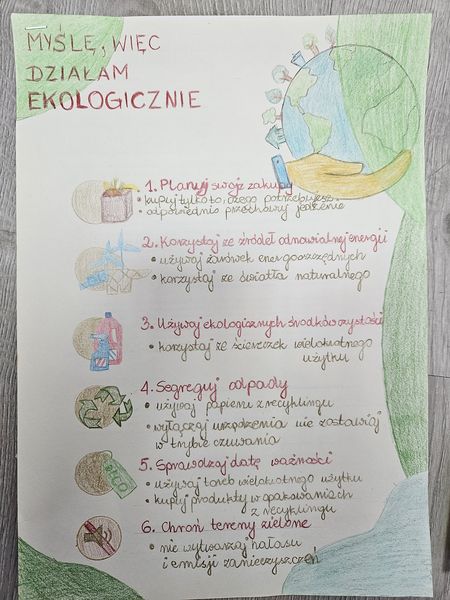 MYŚLĘ, WIĘC
DZIAŁAM
EKOLOGICZNIE
1. Planuj swoje zakupy
• kupuj tylko to, czego potrzebujesz
• odpowiednio przechowuj jedzenie
2. Korzystaj ze źródeł odnawialnej energii
• używaj żarówek energooszczędnych
• korzystaj ze światła naturalnego
3. Używaj ekologicznych środków czystości
• korzystaj ze ściereczek wielokrotnego
użytku
4. Segreguj odpady
• używaj papieru z recyklingu
• wyłączaj urządzenia nie zostawiaj
w trybie czuwania
5. Sprawdzaj datę ważności
• używaj toreb wielokrotnego użytku
• kupuj produkty w opakowaniach
z recyklingu
6. Chroń tereny zielone
• nie wytwarzaj hałasu
i emisji zanieczyszczeń